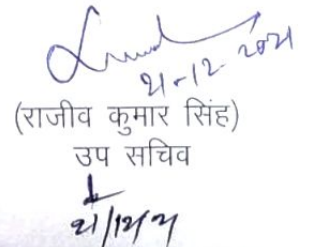 21-12-2021
(राजीव कुमार सिंह)
उप सचिव
21/12/21